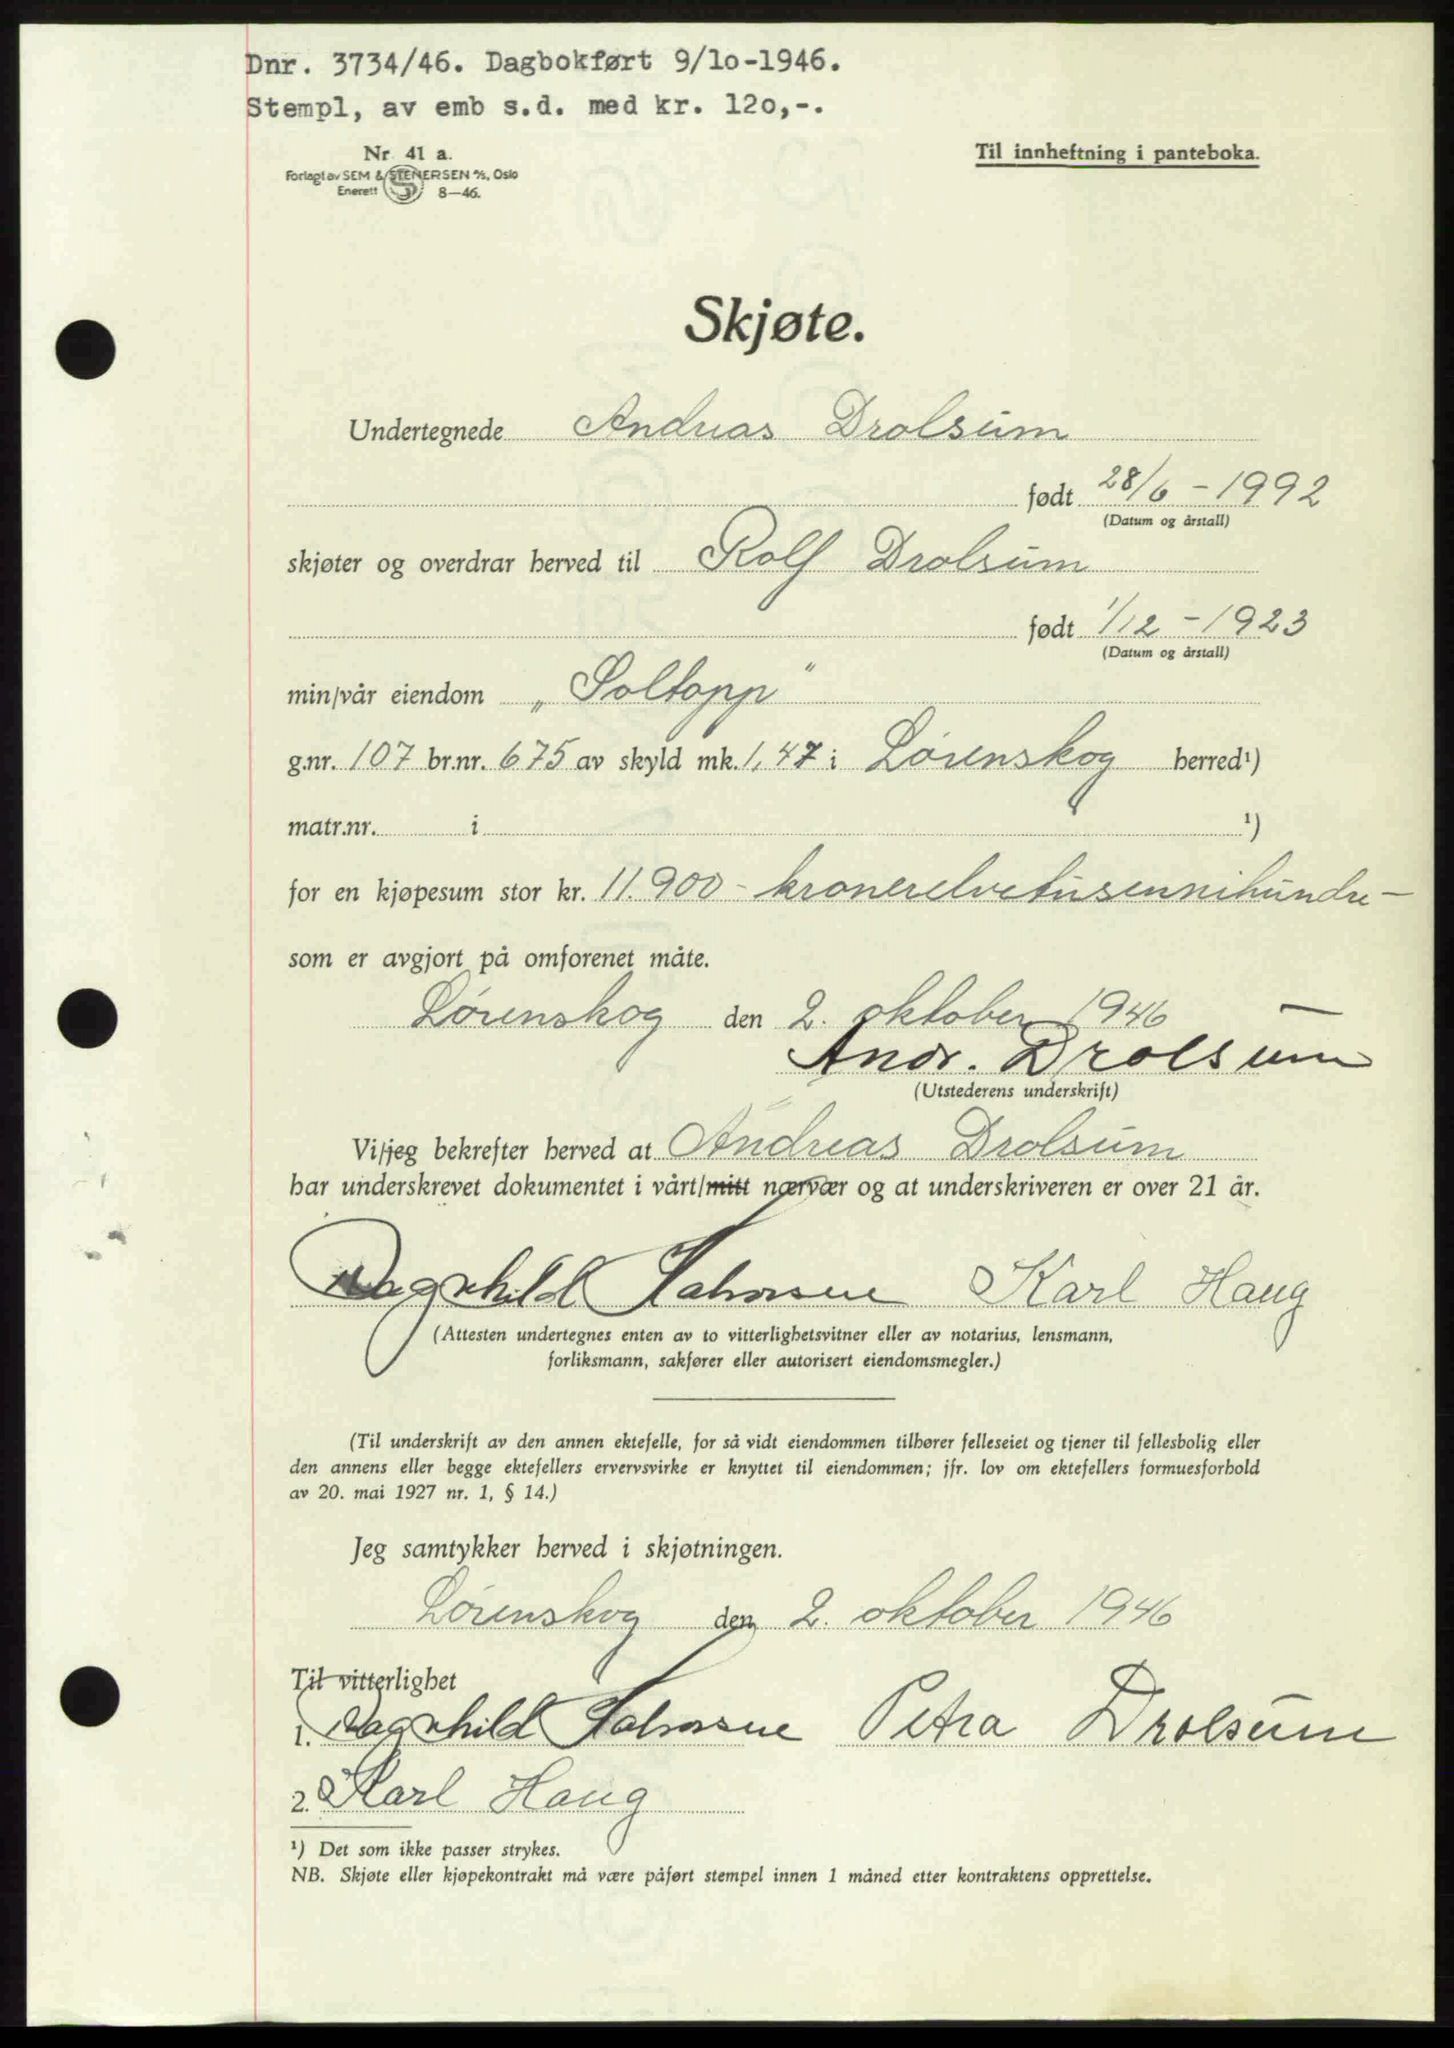 Dnr. 3734/46. Dagbokført 9/10-1946.
Stempl, av emb s.d. med kr. 120,-.
Nr. 41 a.
Forlagt av SEM & STENERSEN A/S, Oslo
Enerett 8—46.
Til innheftning i panteboka.
Skjøte.
Undertegnede Andreas Drolsum
født 28/6 - 1992
(Datum og årstall)
skjøter og overdrar herved til Rolf Drolsum
født 1/12 - 1923
(Datum og årstall)
min/vår eiendom „Soltopp"
g.nr. 107 br.nr. 675 av skyld mk. 1,47 i Lørenskog herred¹)
matr.nr. i ¹)
for en kjøpesum stor kr. 11.900 - kronerelvetusennihundre -
som er avgjort på omforenet måte.
Lørenskog den 2. oktober 1946
Andr. Drolsum
(Utstederens underskrift)
Vi/jeg bekrefter herved at Andreas Drolsum
har underskrevet dokumentet i vårt/mitt nærvær og at underskriveren er over 21 år.
Dagnhild Karl Haug
(Attesten undertegnes enten av to vitterlighetsvitner eller av notarius, lensmann,
forliksmann, sakfører eller autorisert eiendomsmegler.)
(Til underskrift av den annen ektefelle, for så vidt eiendommen tilhører felleseiet og tjener til fellesbolig eller
den annens eller begge ektefellers ervervsvirke er knyttet til eiendommen; jfr. lov om ektefellers formuesforhold
av 20. mai 1927 nr. 1, § 14.)
Jeg samtykker herved i skjøtningen.
Lørenskog den 2. oktober 1946
Til vitterlighet
1. Dagnhild Petra Drolsum
2. Karl Haug
¹) Det som ikke passer strykes.
NB. Skjøte eller kjøpekontrakt må være påført stempel innen 1 måned etter kontraktens opprettelse.